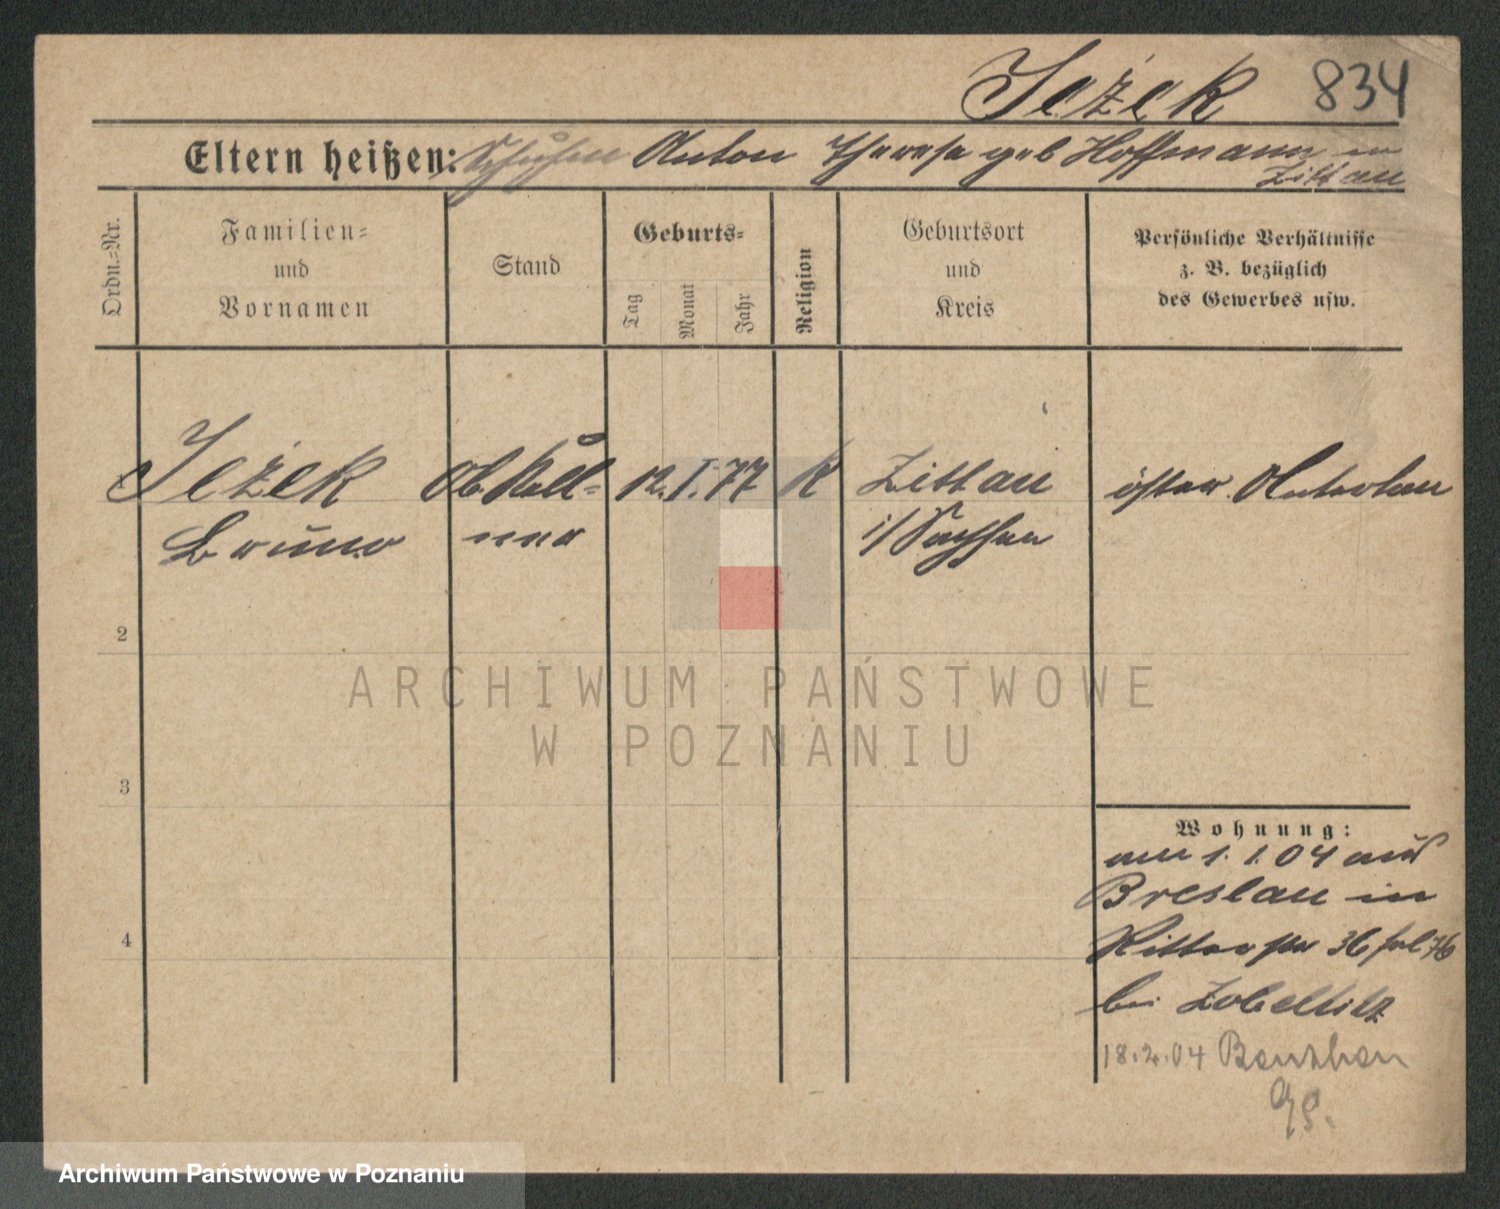 Ježek 834
Eltern heißen: Anton Therese geb Hoffmann in
Zittau
Ordn.-Nr.
Familien-
und
Vornamen
Stand
Geburts-
Tag
Monat
Jahr
Religion
Geburtsort
und
Kreis
Persönliche Verhältnisse
z. B. bezüglich
des Gewerbes usw.
Ježek Ob. Kell- 12. I. 77 K Zittau österr.
Bruno ner i/Sachsen
2
ARCHIWUM PAŃSTWOWE
W POZNANIU
3
Wohnung:
am 1. 1. 04 aus
Breslau in
Ritterstr 36
bei Zobeltitz
18.2.04 Beuthen
4
Archiwum Państwowe w Poznaniu